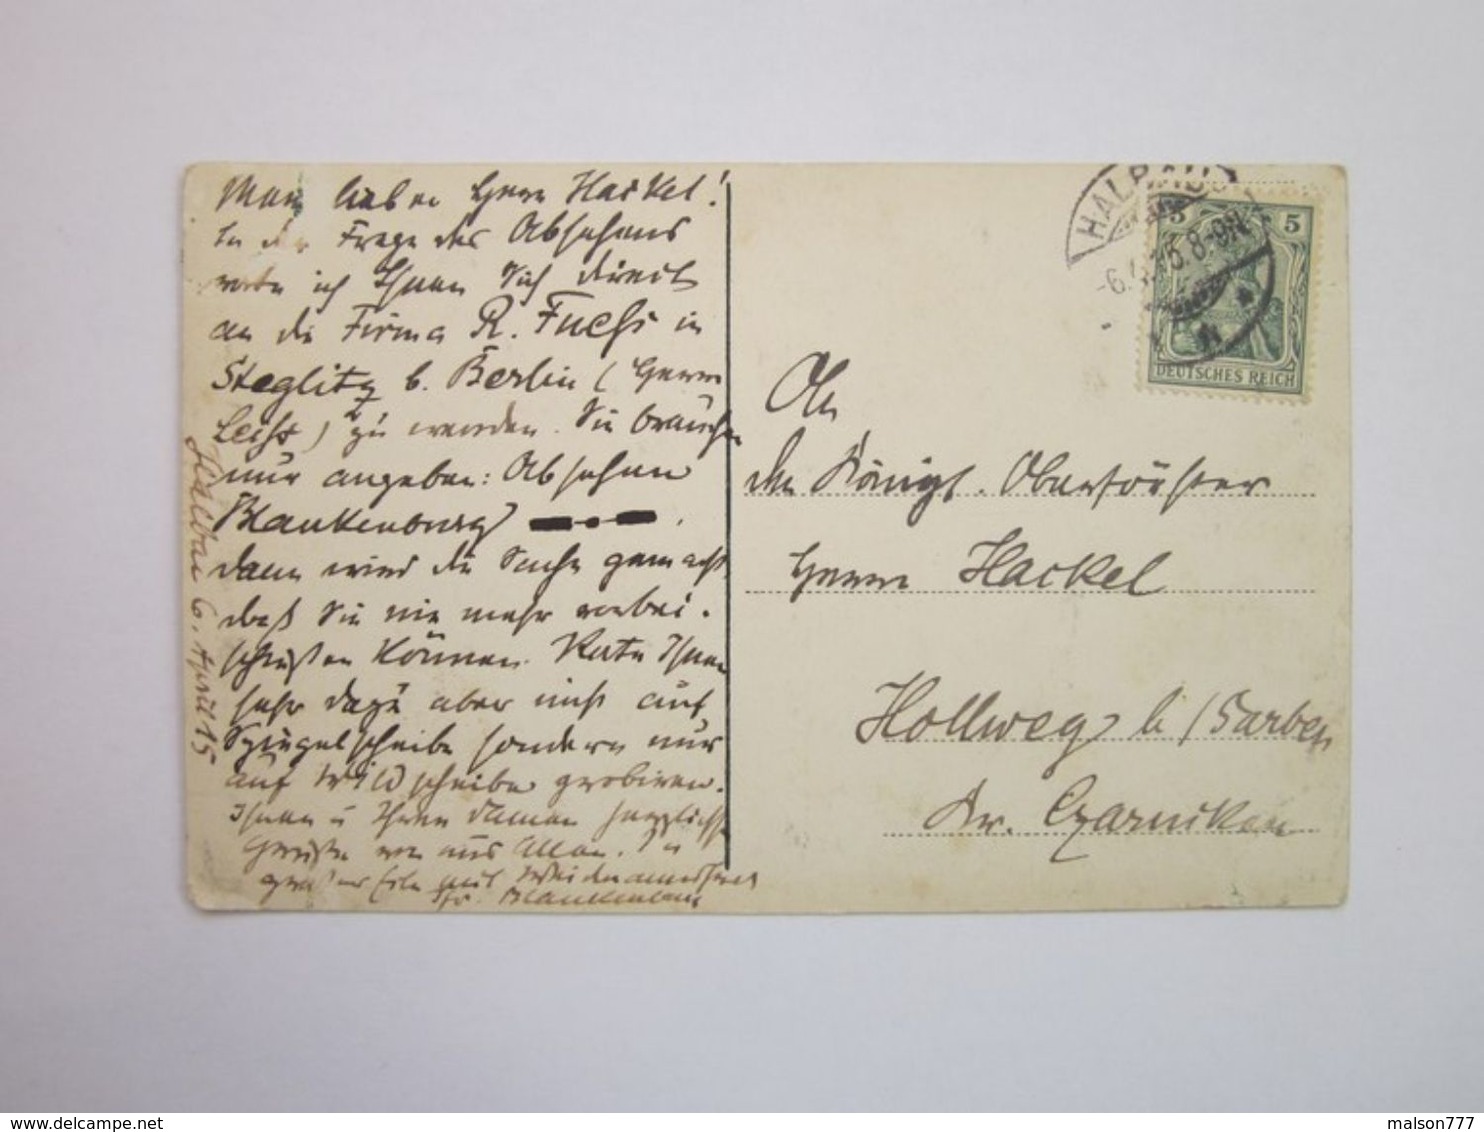 Mein lieber Herr Hackel!
In der Frage des Absehens
rate ich Ihnen Sich direct
an die Firma R. Fuess in
Steglitz b. Berlin (Herrn
Leiss) zu wenden. Sie brauchen
nur angeben: Absehen
Blankenburg
dann wird die Sache gemacht
daß Sie nie mehr vorbei-
schießen können. Rate Ihnen
sehr dazu aber nicht auf
Spiegelscheibe sondern nur
auf Wildscheibe probieren.
Ihnen u Ihren Damen herzliche
Grüße von uns Allen. In
großer Eile mit Weidmannsheil
Ihr Blankenburg
Halbau 6. April 15
HALBAU
6.4.15 8-9N
5 5
DEUTSCHES REICH
An
den Königl. Oberförster
Herrn Hackel
Hollweg b/Garben
Kr. Czarnikau
delcampe.net
malson777